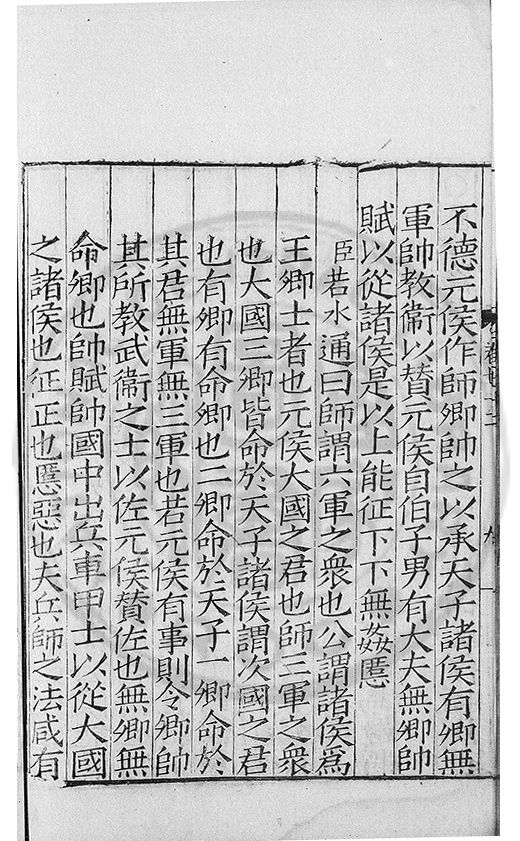 不德元侯作師卿帥之以承天子諸侯有卿無
軍帥教衞以賛元侯自伯子男有大夫無卿帥
賦以從諸侯是以上能征下下無姦慝
臣若水通曰師謂六軍之衆也公謂諸侯爲
王卿士者也元侯大國之君也師三軍之衆
也大國三卿皆命於天子諸侯謂次國之君
也有卿有命卿也二卿命於天子一卿命於
其君無軍無三軍也若元侯有事則令卿帥
其所教武衞之士以佐元侯賛佐也無卿無
命卿也帥賦帥國中出兵車甲士以從大國
之諸侯也征正也慝惡也夫兵師之法咸有